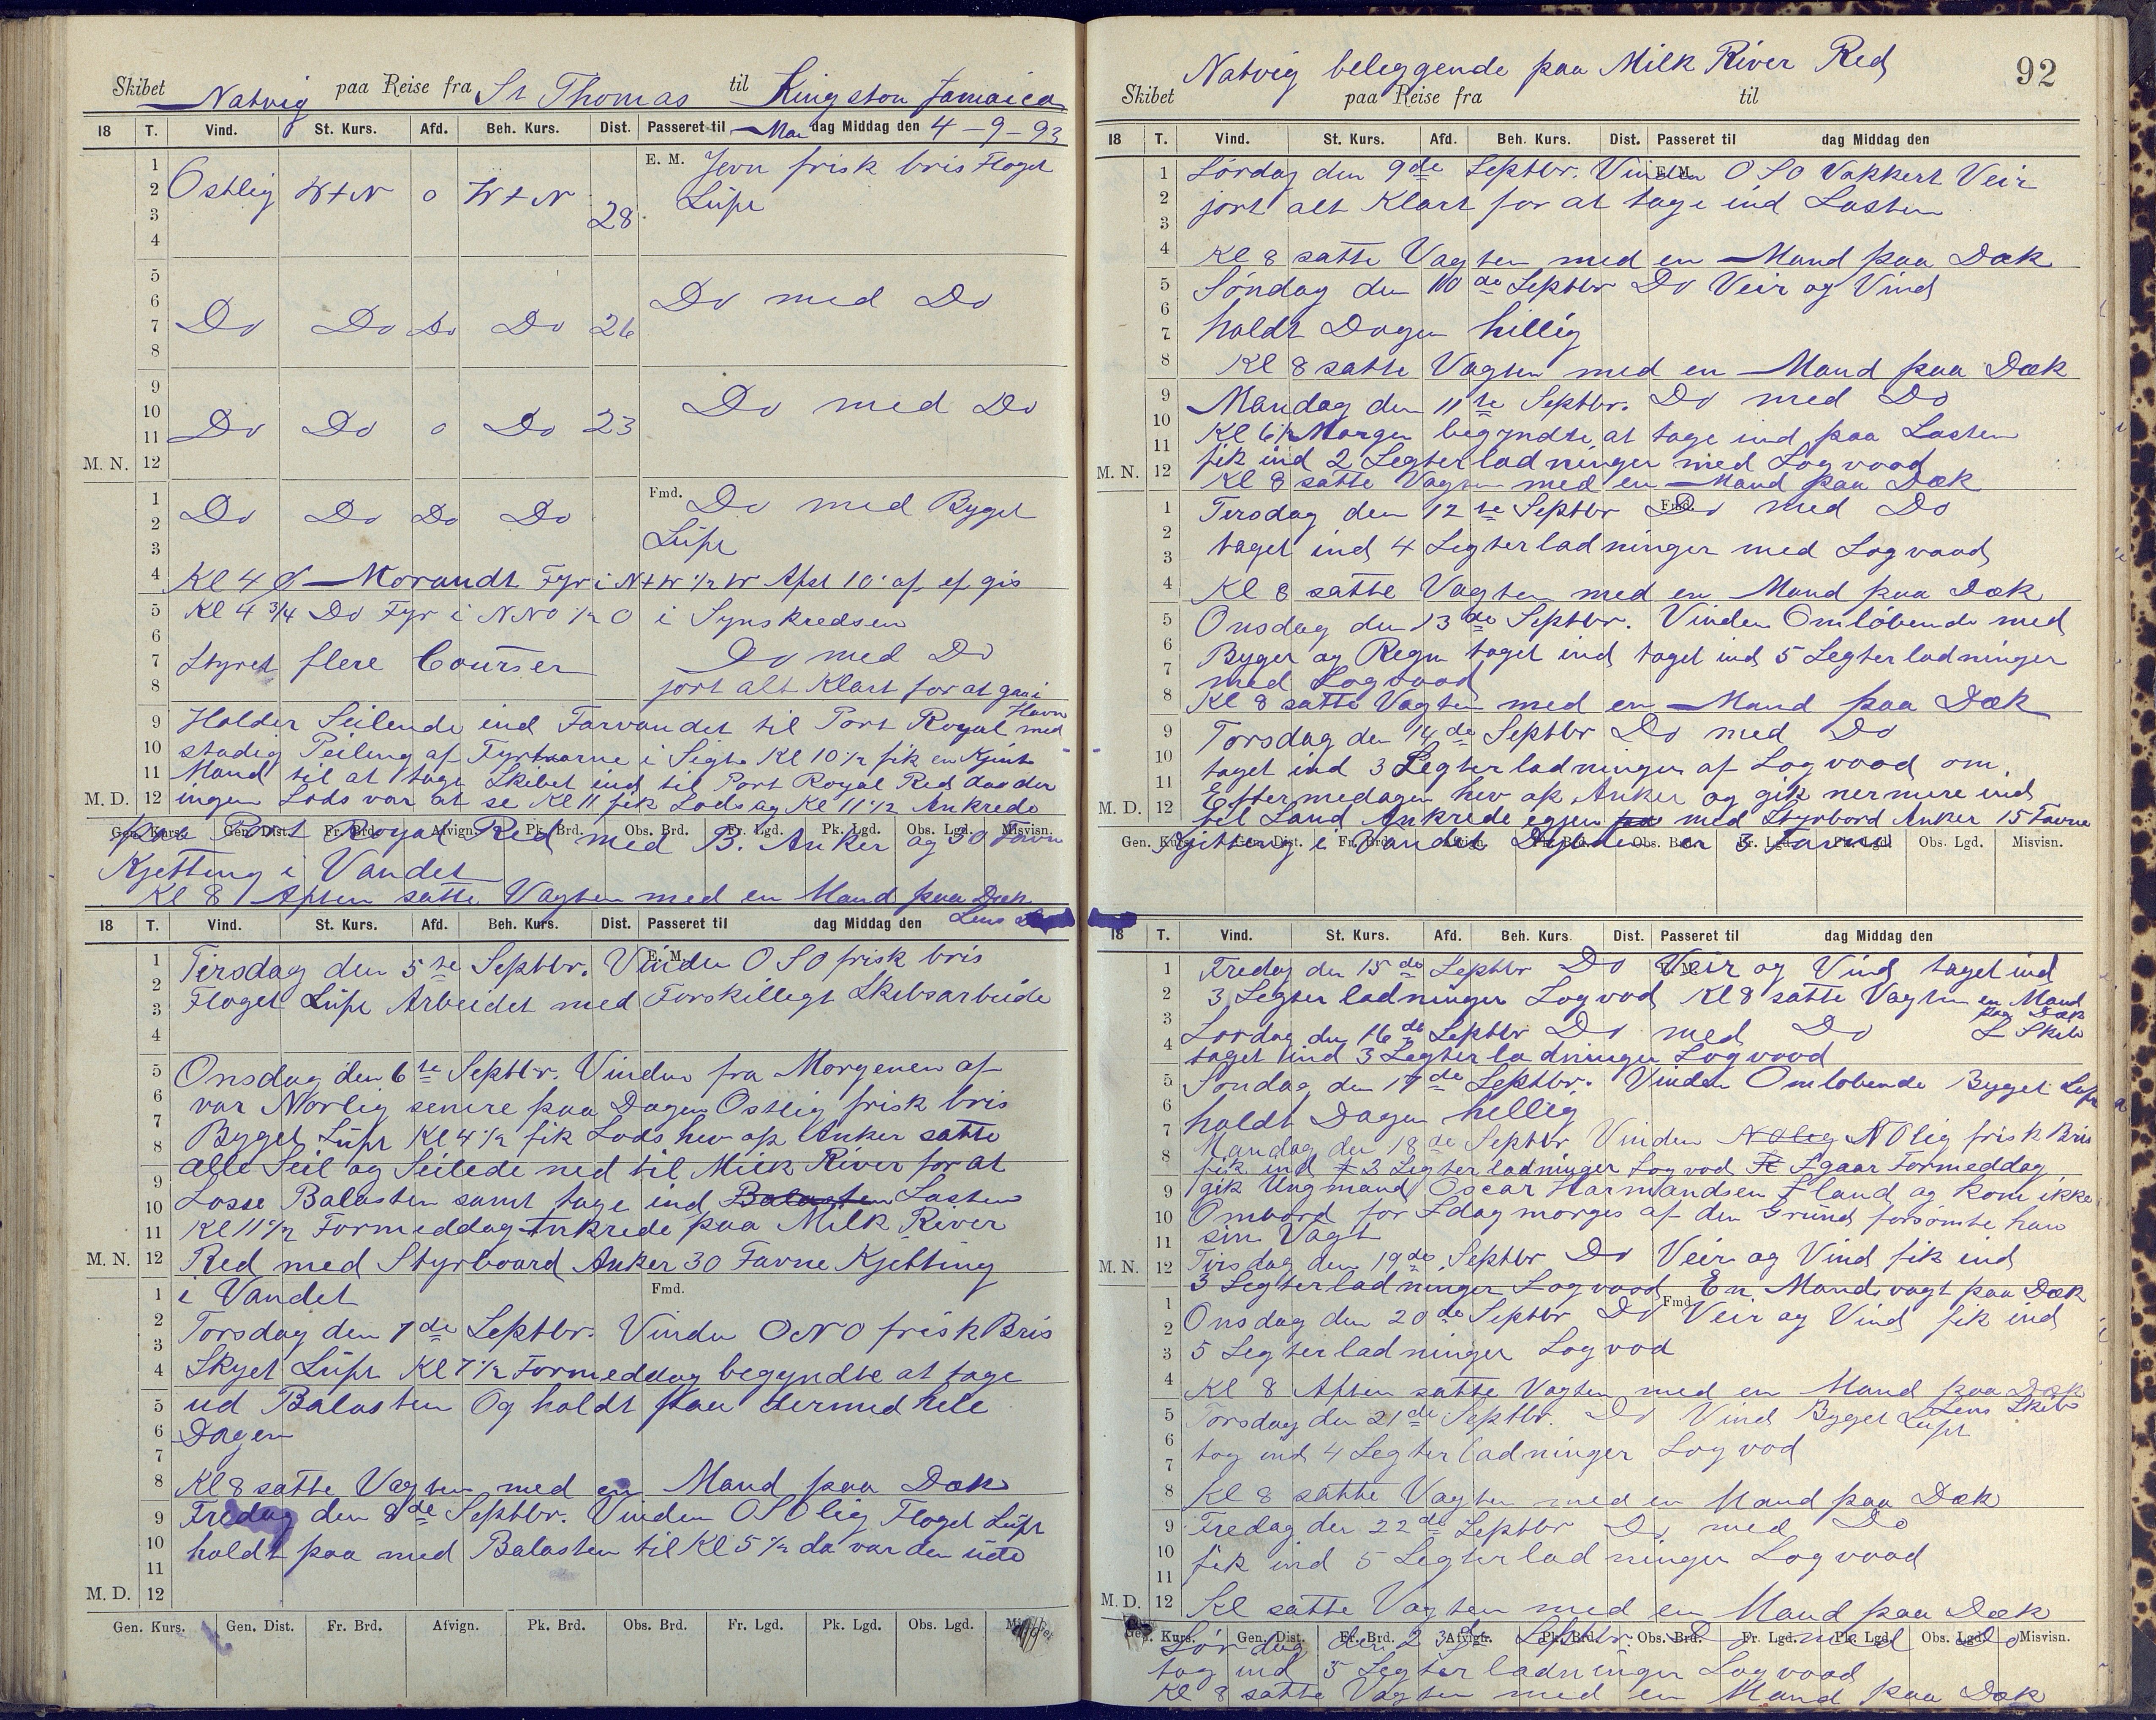 Skibet Natvig paa Reise fra St Thomas til Kingston Jamaica
18 T. Vind. St. Kurs. Afd. Beh. Kurs. Dist. Passeret til Man dag Middag den 4-9-93
1 E. M. Jevn frisk bris Floget
2 Ostlig W t N o W t N 28 Lüft
3
4
5
6 Do med Do
7 Do Do Do Do 26
8
9
10 Do med Do
11 Do Do o Do 23
M. N. 12
1 Fmd. Do med Byget
2 Do Do Do Do
3 Lüft
4 Kl 4 Morandt Fyr i N t W 1/2 W Afst 10' af ef gis
5 Kl 4 3/4 Do Fyr i NNO 1/2 O i Synskredsen
6
7 Styret flere Courser Do med Do
8 jort alt Klart for at gaa i Havn
9 Holder Seilende ind Farvandet til Port Royal med
10 stadig Peiling af Fyrtaarne i Sigte Kl 10 1/2 fik en Kjent
11 Mand til at tage Skibet ind til Port Royal Red daa der
M. D. 12 ingen Lods var at se Kl 11 fik Lods og Kl 11 1/2 Ankrede
Gen. Kurs. Gen. Dist. Fr. Brd. Afvign. Pk. Brd. Obs. Brd. Fr. Lgd. Pk. Lgd. Obs. Lgd. Misvisn.
paa Port Royal Red med B. Anker og 30 Favn
Kjetting i Vandet
Kl 8 Aften satte Vagten med en Mand paa Dæk
Lens
18 T. Vind. St. Kurs. Afd. Beh. Kurs. Dist. Passeret til dag Middag den
1 Tirsdag den 5te Septbr. Vinden OSO frisk bris
E. M.
2 Floget Lüft Arbeidet med Forskilligt Skibsarbeide
3
4
5 Onsdag den 6te Septbr. Vinden fra Morgenen af
6 var Norlig senere paa Dagen Ostlig frisk bris
7 Byget Lüft Kl 4 1/2 fik Lods hev op Anker satte
8 alle Seil og Seilede ned til Milk River for at
9
10 Losse Balasten samt tage ind Balasten Lasten
11 Kl 11 1/2 Formeddag Ankrede paa Milk River
M. N. 12 Red med Styrboard Anker 30 Favne Kjetting
1 i Vandet
Fmd.
2 Torsdag den 7de Septbr. Vinden ONO frisk Bris
3
4 Skyet Lüft Kl 7 1/2 Formeddag begyndte at tage
5 ud Balasten Og holdt paa dermed hele
6 Dagen
7
8 Kl 8 satte Vagten med en Mand paa Dæk
9 Fredag den 8de Septbr. Vinden OSOlig Floget Lüft
10 holdt paa med Balasten til Kl 5 1/2 da var den üde
11
M. D. 12
Gen. Kurs. Gen. Dist. Fr. Brd. Afvign. Pk. Brd. Obs. Brd. Fr. Lgd. Pk. Lgd. Obs. Lgd.
92
Skibet Natvig beleggende paa Milk River Red
paa Reise fra til
18 T. Vind. St. Kurs. Afd. Beh. Kurs. Dist. Passeret til dag Middag den
1 Lørdag den 9de Septbr. Vinden OSO Vakkert Veir
E. M.
2 jort alt Klart for at tage ind Lasten
3
4 Kl 8 satte Vagten med en Mand paa Dæk
5 Søndag den 10de Septbr Do Veir og Vind
6
7 holdt Dagen hillig
8 Kl 8 satte Vagten med en Mand paa Dæk
9 Mandag den 11te Septbr. Do med Do
10 Kl 6 1/2 Morgen begyndte at tage ind paa Lasten
11 fik ind 2 Legterladninger med Logvood
M. N. 12 Kl 8 satte Vagten med en Mand paa Dæk
1 Tirsdag den 12te Septbr Do med Do
Fmd.
2 taget ind 4 Legterladninger med Logvood
3
4 Kl 8 satte Vagten med en Mand paa Dæk
5 Onsdag den 13de Septbr. Vinden Omløbende med
6 Byger og Regn taget ind taget ind 5 Legterladninger
7 med Logvood
8 Kl 8 satte Vagten med en Mand paa Dæk
9 Torsdag den 14de Septbr Do med Do
10 taget ind 3 Legterladninger af Logvood om
11 Eftermedagen hev op Anker og gik nermere ind
M. D. 12 til Land Ankrede egjen paa med Styrbord Anker 15 Favne
Gen. Kurs. Gen. Dist. Fr. Brd. Afvign. Pk. Brd. Obs. Brd. Fr. Lgd. Pk. Lgd. Obs. Lgd. Misvisn.
Kjitting i Vandet Dybden er 3 Favne
18 T. Vind. St. Kurs. Afd. Beh. Kurs. Dist. Passeret til dag Middag den
1 Fredag den 15de Septbr Do Veir og Vind taget ind
2 3 Legterladninger Logvod Kl 8 satte Vagten en Mand
paa Dæk
3 Lørdag den 16de Septbr Do med Do L Skib
4 taget ind 3 Legterladninger Logvood
5 Søndag den 17de Septbr. Vinden Omløbende Byget Luft
6 holdt Dagen hellig
7 Mandag den 18de Septbr Vinden NOlig NOlig frisk Bris
8 fik ind 3 Legterladninger Logvod Igaar Formeddag
9 gik Ungmand Oscar Harmandsen I land og kom ikke
10 Ombord for Idag morges af den Grund forsømte han
11 sin Vagt
M. N. 12 Tirsdag den 19de Septbr Do Veir og Vind fik ind
3 Legterladninger Logvood En Mands vagt paa Dæk
1 Fmd.
2 Onsdag den 20de Septbr Do Veir og Vind fik ind
3 5 Legterladninger Logvod
4 Kl 8 Aften satte Vagten med en Mand paa Dæk
Lens Skib
5 Torsdag den 21de Septbr. Do Vind Byget Luft
6 tog ind 4 Legterladninger Logvod
7
8 Kl 8 satte Vagten med en Mand paa Dæk
9 Fredag den 22de Septbr Do med Do
10 fik ind 5 Legterladninger Logvood
11
M. D. 12 Kl satte Vagten med en Mand paa Dæk
Gen. Kurs. Gen. Dist. Fr. Brd. Afvign. Pk. Brd. Obs. Brd. Fr. Lgd. Pk. Lgd. Obs. Lgd. Misvisn.
Lørdag den 23de Septbr. Do med Do
tog ind 5 Legterladninger Logvood
Kl 8 satte Vagten med en Mand paa Dæk